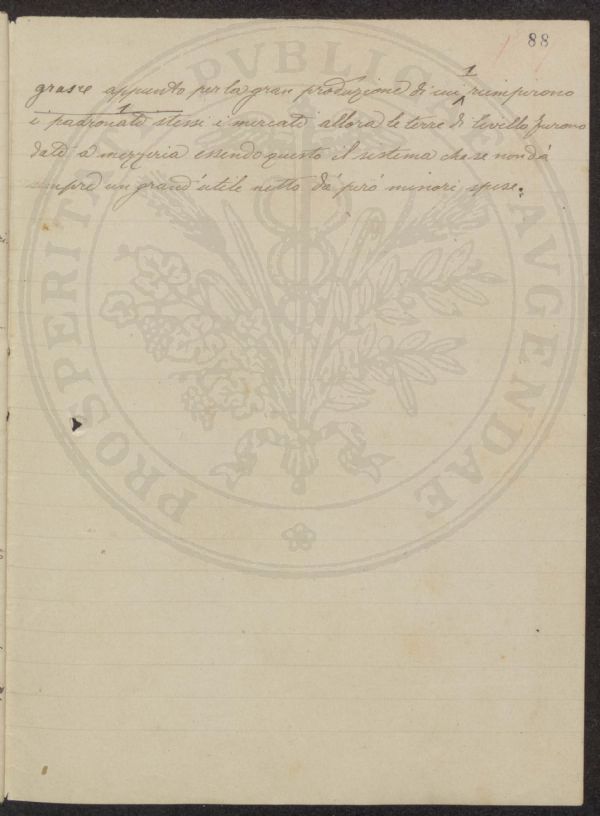 88
grasce appunto per la gran produzione di cui 1 riempirono
i padronati stessi 1 i mercati allora le terre di livello furono
date a mezzeria essendo questo il sistema che se non dà
sempre un grand'utile netto dà però minori spese.
PROSPERITATI PVBLICAE AVGENDAE